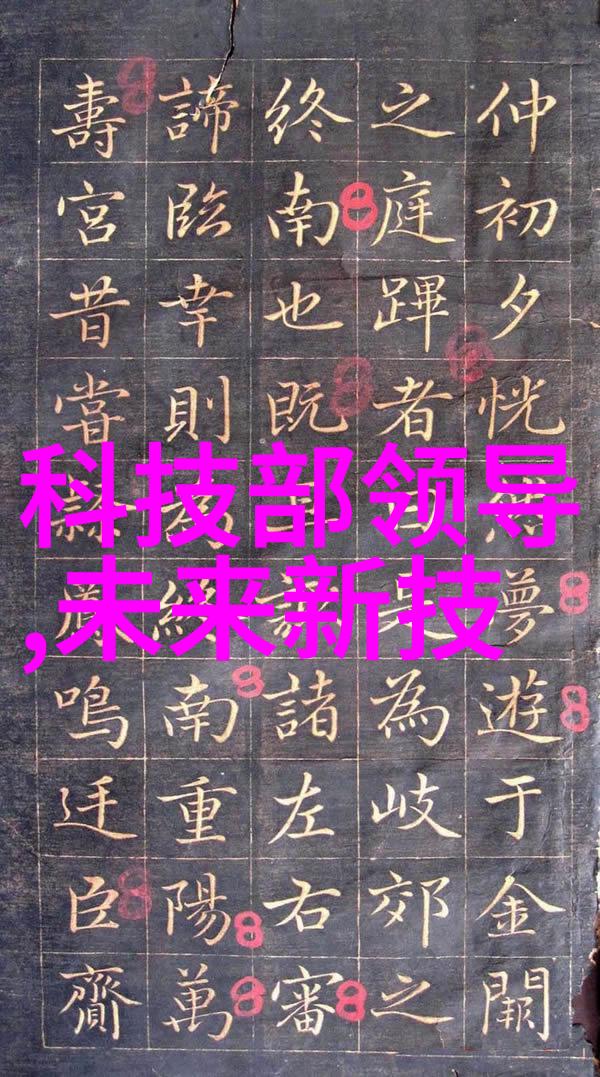 仲初夕恍然夢遊于金闕
之庭蹕者曰為岐郊之
終南也既諸左右審
諦臨幸則為終南重陽萬
壽宮昔嘗鳴廷臣齎
科技部领导
,未来新技